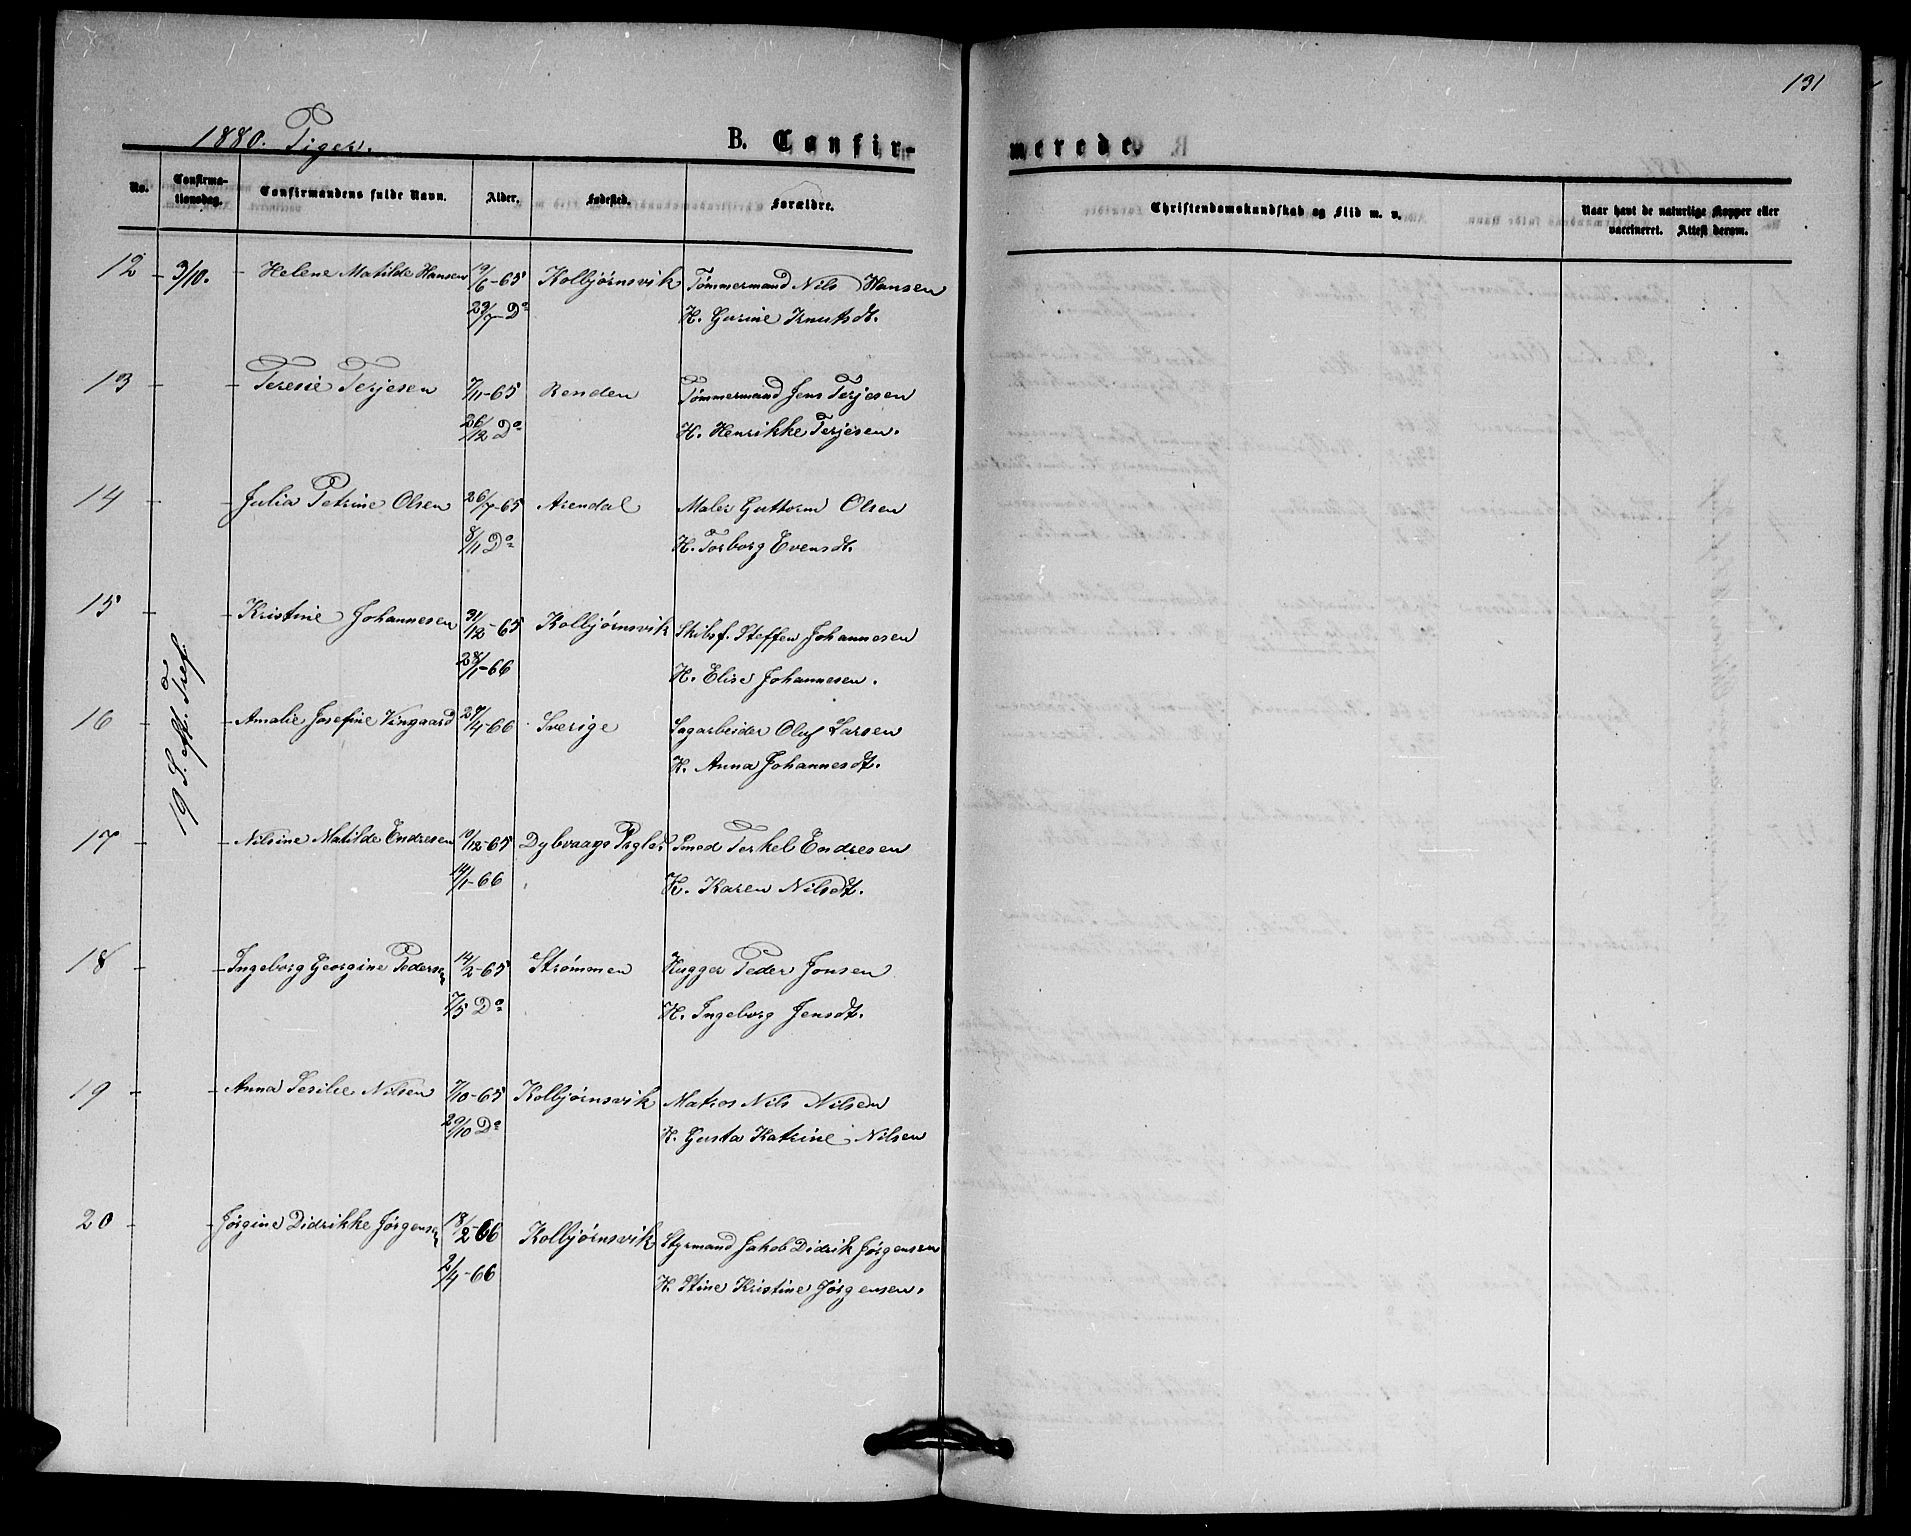 131
1880. Piger.
B. Confirmerede
No.
Confirma-
tionsdag.
Confirmandens fulde Navn.
Alder.
Fødested.
Forældre.
Christendomskundskab og Flid m. v.
Naar havt de naturlige Kopper eller
vaccineret. Attest derom.
12 3/10. Helene Matilde Hansen 19/6-65 Kolbjørnsvik Tømmermand Nils Hansen
29/7 Do H. Gurine Knutsdt.
13 - - Teresie Terjesen 7/11-65 Renden Tømmermand Jens Terjesen
26/12 Do H. Henrikke Terjesen.
14 - - Julia Petrine Olsen 26/7-65 Arendal Maler Guttorm Olsen
8/11 Do H. Torborg Evensdt.
15 - - Kristine Johannesen 31/12-65 Kolbjørnsvik Skibsf. Steffen Johannesen
28/1-66 H. Elise Johannesen.
19 S. eft. Tref.
16 - - Amalie Josefine Vingaard 27/4-66 Sverige Sagarbeider Oluf Larsen
H. Anna Johannesdt.
17 - - Nilsine Matilde Endresen 10/12-65 Dybvaags Prgld. Smed Terkel Endresen
14/1-66 H. Karen Nilsdt.
18 - - Ingeborg Georgine Pedersen 14/2-65 Strømmen Hugger Peder Jonsen
7/5 Do H. Ingeborg Jensdt.
19 - - Anna Sesilie Nilsen 7/10-65 Kolbjørnsvik Matros Nils Nilsen
29/10 Do H. Gusta Katrine Nilsen
20 - - Jørgine Didrikke Jørgensen 18/2-66 Kolbjørnsvik Styrmand Jakob Didrik Jørgensen
2/4-66 H. Stine Kristine Jørgensen.